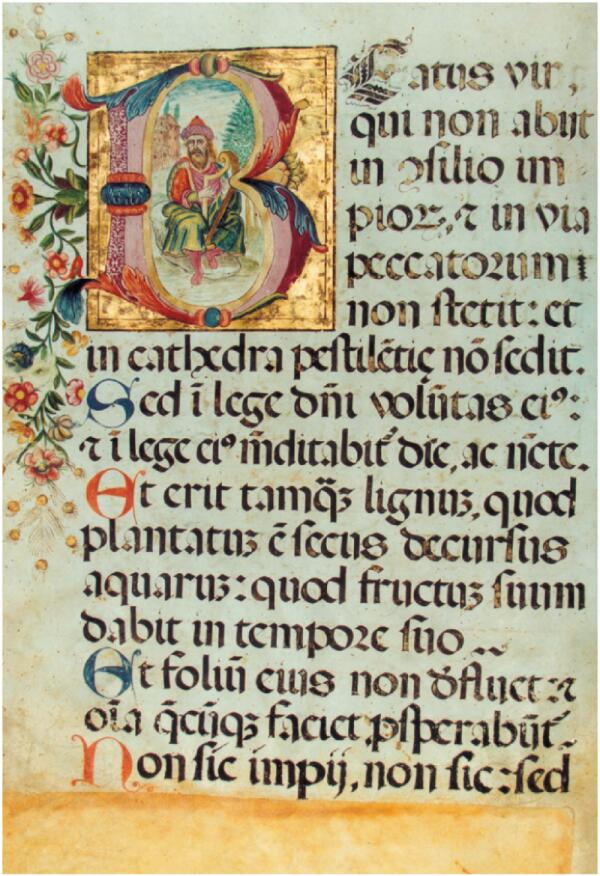 Beatus vir,
qui non abiit
in ꝯsilio im
pioꝝ, ⁊ in via
peccatorum
non stetit: et
in cathedra pestilētię nō sedit.
Sed ī lege dn̄i volūtas eiꝰ:
⁊ ī lege eiꝰ m̄ditabit̃ die, ac n̄cte.
Et erit tamq̄ꝫ lignuꝫ, quod
plantatuꝫ ē secus decursus
aquaruꝫ: quod fructuꝫ suum
dabit in tempore suo
Et foliū eius non d̄fluet: ⁊
oīa q̄cūqꝫ faciet, ꝓsperabūt̃.
Non sic impij, non sic: sed